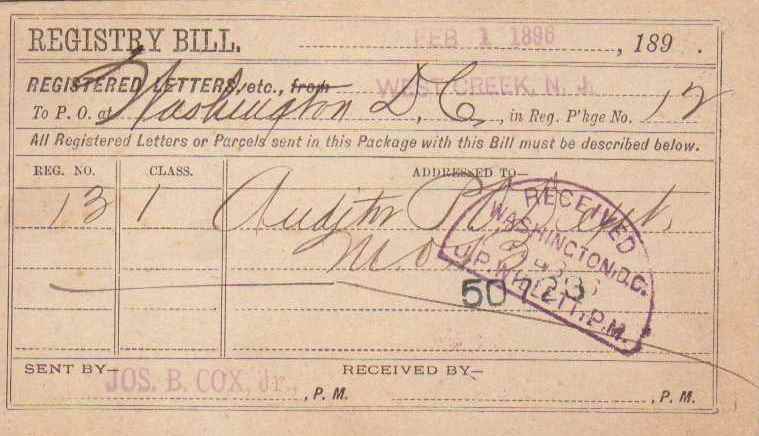 REGISTRY BILL. FEB 1 1896, 189 .
REGISTERED LETTERS, etc., from WEST CREEK, N. J.
To P. O. at Washington D.C., in Reg. P'kge No. 12
All Registered Letters or Parcels sent in this Package with this Bill must be described below.
REG. NO. CLASS. ADDRESSED TO—
13 1 Auditor P.O. Dept.
M.O.
RECEIVED
WASHINGTON, D.C.
J. P. WILLETT, P.M.
50 23
SENT BY— RECEIVED BY—
JOS. B. COX, Jr., , P. M. , P. M.